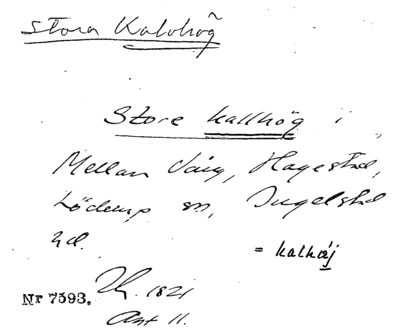 Stora Kalvhög
Store kallhög i
Mellan Vång, Hagestad,
Löderup sn, Ingelstad
hd.
= kalhåj
Nr 7593. 1821
Akt 11.